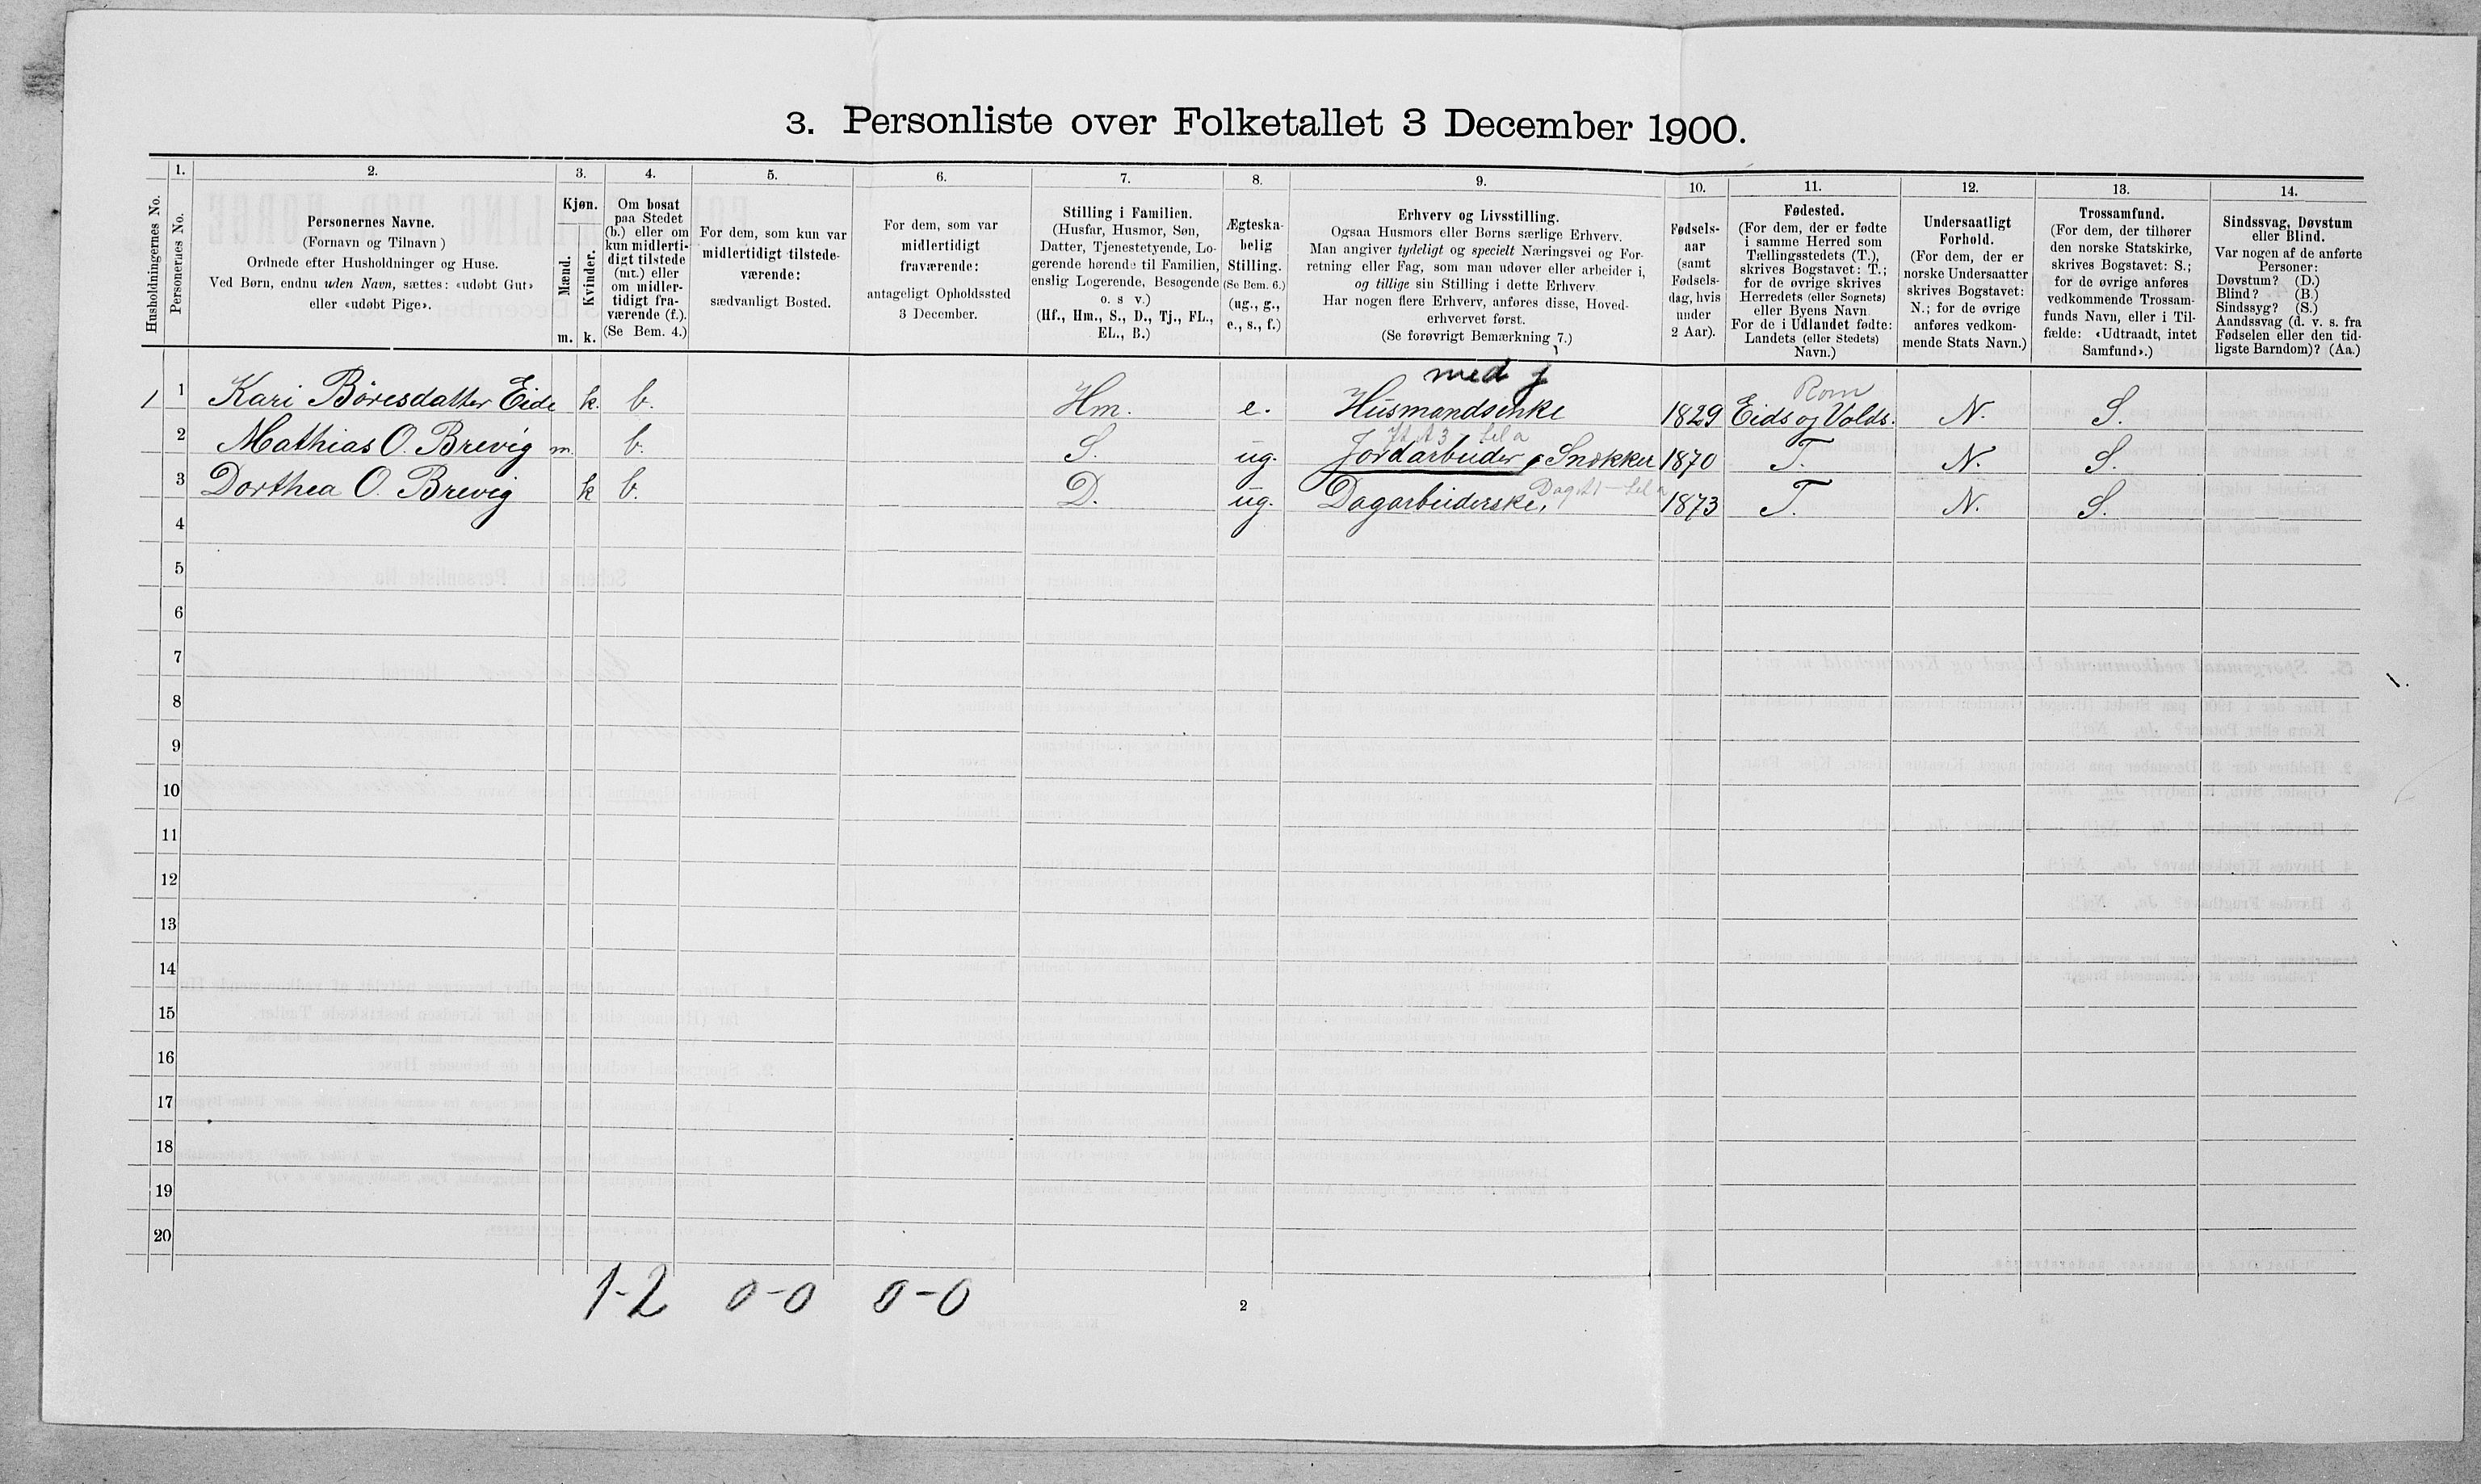 3. Personliste over Folketallet 3 December 1900.
Husholdningernes No.
1.
Personernes No.
2.
Personernes Navne.
(Fornavn og Tilnavn)
Ordnede efter Husholdninger og Huse.
Ved Børn, endnu uden Navn, sættes: «udøbt Gut»
eller «udøbt Pige».
3.
Kjøn.
Mænd.
Kvinder.
m. k.
4.
Om bosat
paa Stedet
(b.) eller om
kun midlerti-
digt tilstede
(mt.) eller
om midler-
tidigt fra-
værende (f.).
(Se Bem. 4.)
5.
For dem, som kun var
midlertidigt tilstede-
værende:
sædvanligt Bosted.
6.
For dem, som var
midlertidigt
fraværende:
antageligt Opholdssted
3 December.
7.
Stilling i Familien.
(Husfar, Husmor, Søn,
Datter, Tjenestetyende, Lo-
gerende hørende til Familien,
enslig Logerende, Besøgende
o. s v.)
(Hf., Hm., S., D., Tj., FL.,
EL., B.)
8.
Ægteska-
belig
Stilling.
(Se Bem. 6.)
(ug., g.,
e., s., f.)
9.
Erhverv og Livsstilling.
Ogsaa Husmors eller Børns særlige Erhverv.
Man angiver tydeligt og specielt Næringsvei og For-
retning eller Fag, som man udøver eller arbeider i,
og tillige sin Stilling i dette Erhverv.
Har nogen flere Erhverv, anføres disse, Hoved-
erhvervet først.
(Se forøvrigt Bemærkning 7.)
10.
Fødsels-
aar
(samt
Fødsels-
dag, hvis
under
2 Aar).
11.
Fødested.
(For dem, der er fødte
i samme Herred som
Tællingsstedets (T.),
skrives Bogstavet: T.;
for de øvrige skrives
Herredets (eller Sognets)
eller Byens Navn.
For de i Udlandet fødte:
Landets (eller Stedets)
Navn.)
12.
Undersaatligt
Forhold.
(For dem, der er
norske Undersaatter
skrives Bogstavet:
N.; for de øvrige
anføres vedkom-
mende Stats Navn.)
13.
Trossamfund.
(For dem, der tilhører
den norske Statskirke,
skrives Bogstavet: S.;
for de øvrige anføres
vedkommende Trossam-
funds Navn, eller i Til-
fælde: «Udtraadt, intet
Samfund».)
14.
Sindssvag, Døvstum
eller Blind.
Var nogen af de anførte
Personer:
Døvstum? (D.)
Blind? (B.)
Sindssyg? (S.)
Aandssvag (d. v. s. fra
Fødselen eller den tid-
ligste Barndom)? (Aa.)
med j Rom
1 1 Kari Böresdatter Eide k. b. Hm. e. Husmandsenke 1829 Eids og Volds. N. S.
2 Mathias O. Brevig m. b. S. ug. Jordarbeider, Snekker 1870 T. N. S.
3 Dorthea O. Brevig k b. D. ug. Dagarbeiderske, 1873 T. N. S.
4
5
6
7
8
9
10
11
12
13
14
15
16
17
18
19
20
1-2 0-0 0-0
2